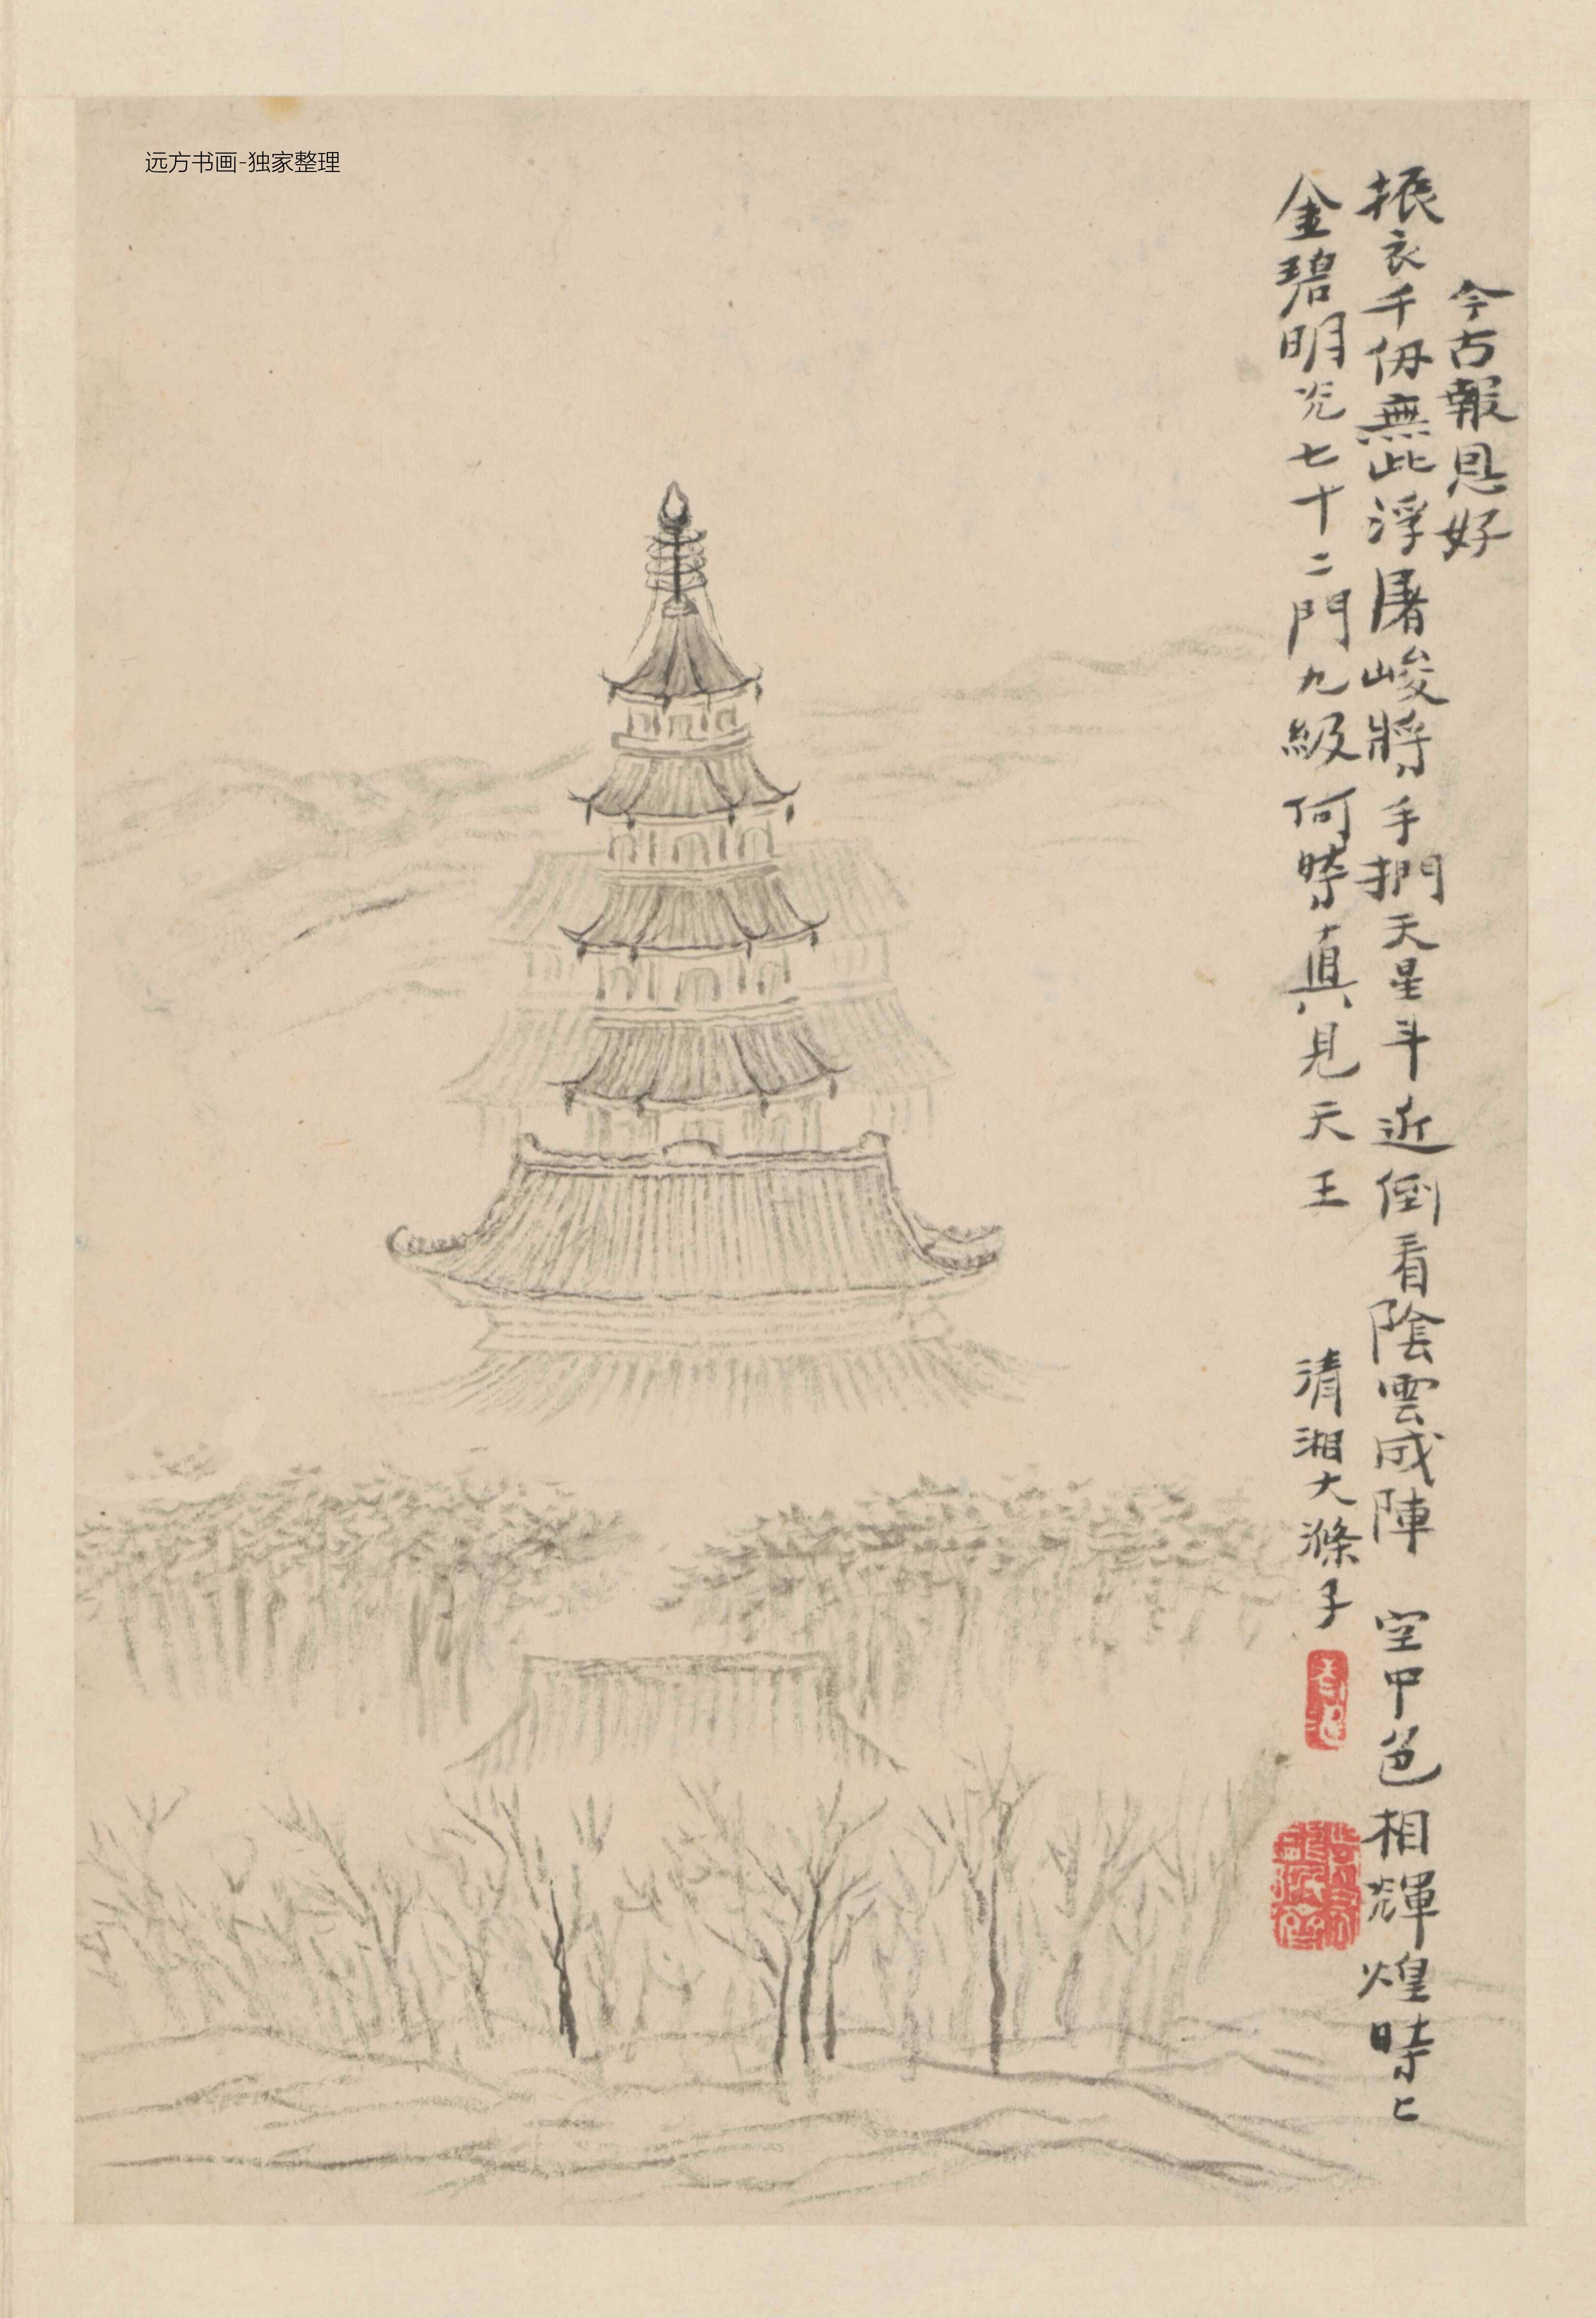 远方书画-独家整理
今古報恩好
振衣千仞無此浮屠峻將手捫天星斗近倒看陰雲成陣 空中色相輝煌時〻
金碧明光七十二門九級何時真見天王
清湘大滌子